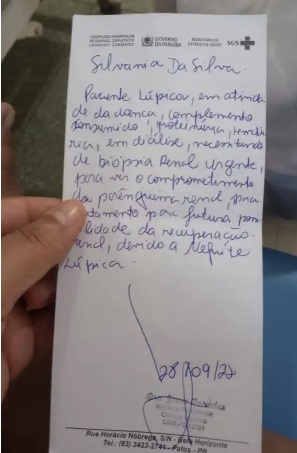 COMPLEXO HOSPITALAR
REGIONAL DEPUTADO
JANDUHY CARNEIRO
GOVERNO
DA PARAÍBA
SUS
Silvania Da Silva
Paciente Lúpica, em ativida
de da doença, complemento
consumido, proteinúria,
em diálise, necessitando
de biópsia Renal Urgente,
para ver o comprometimento
do parênquima renal, para
tratamento para futura possi
bilidade da recuperação
renal, devido a Nefrite
Lúpica.
28/09/22
Rua Horácio Nóbrega, S/N - Belo Horizonte
Tel.: (83) 3423-2741 - Patos - PB